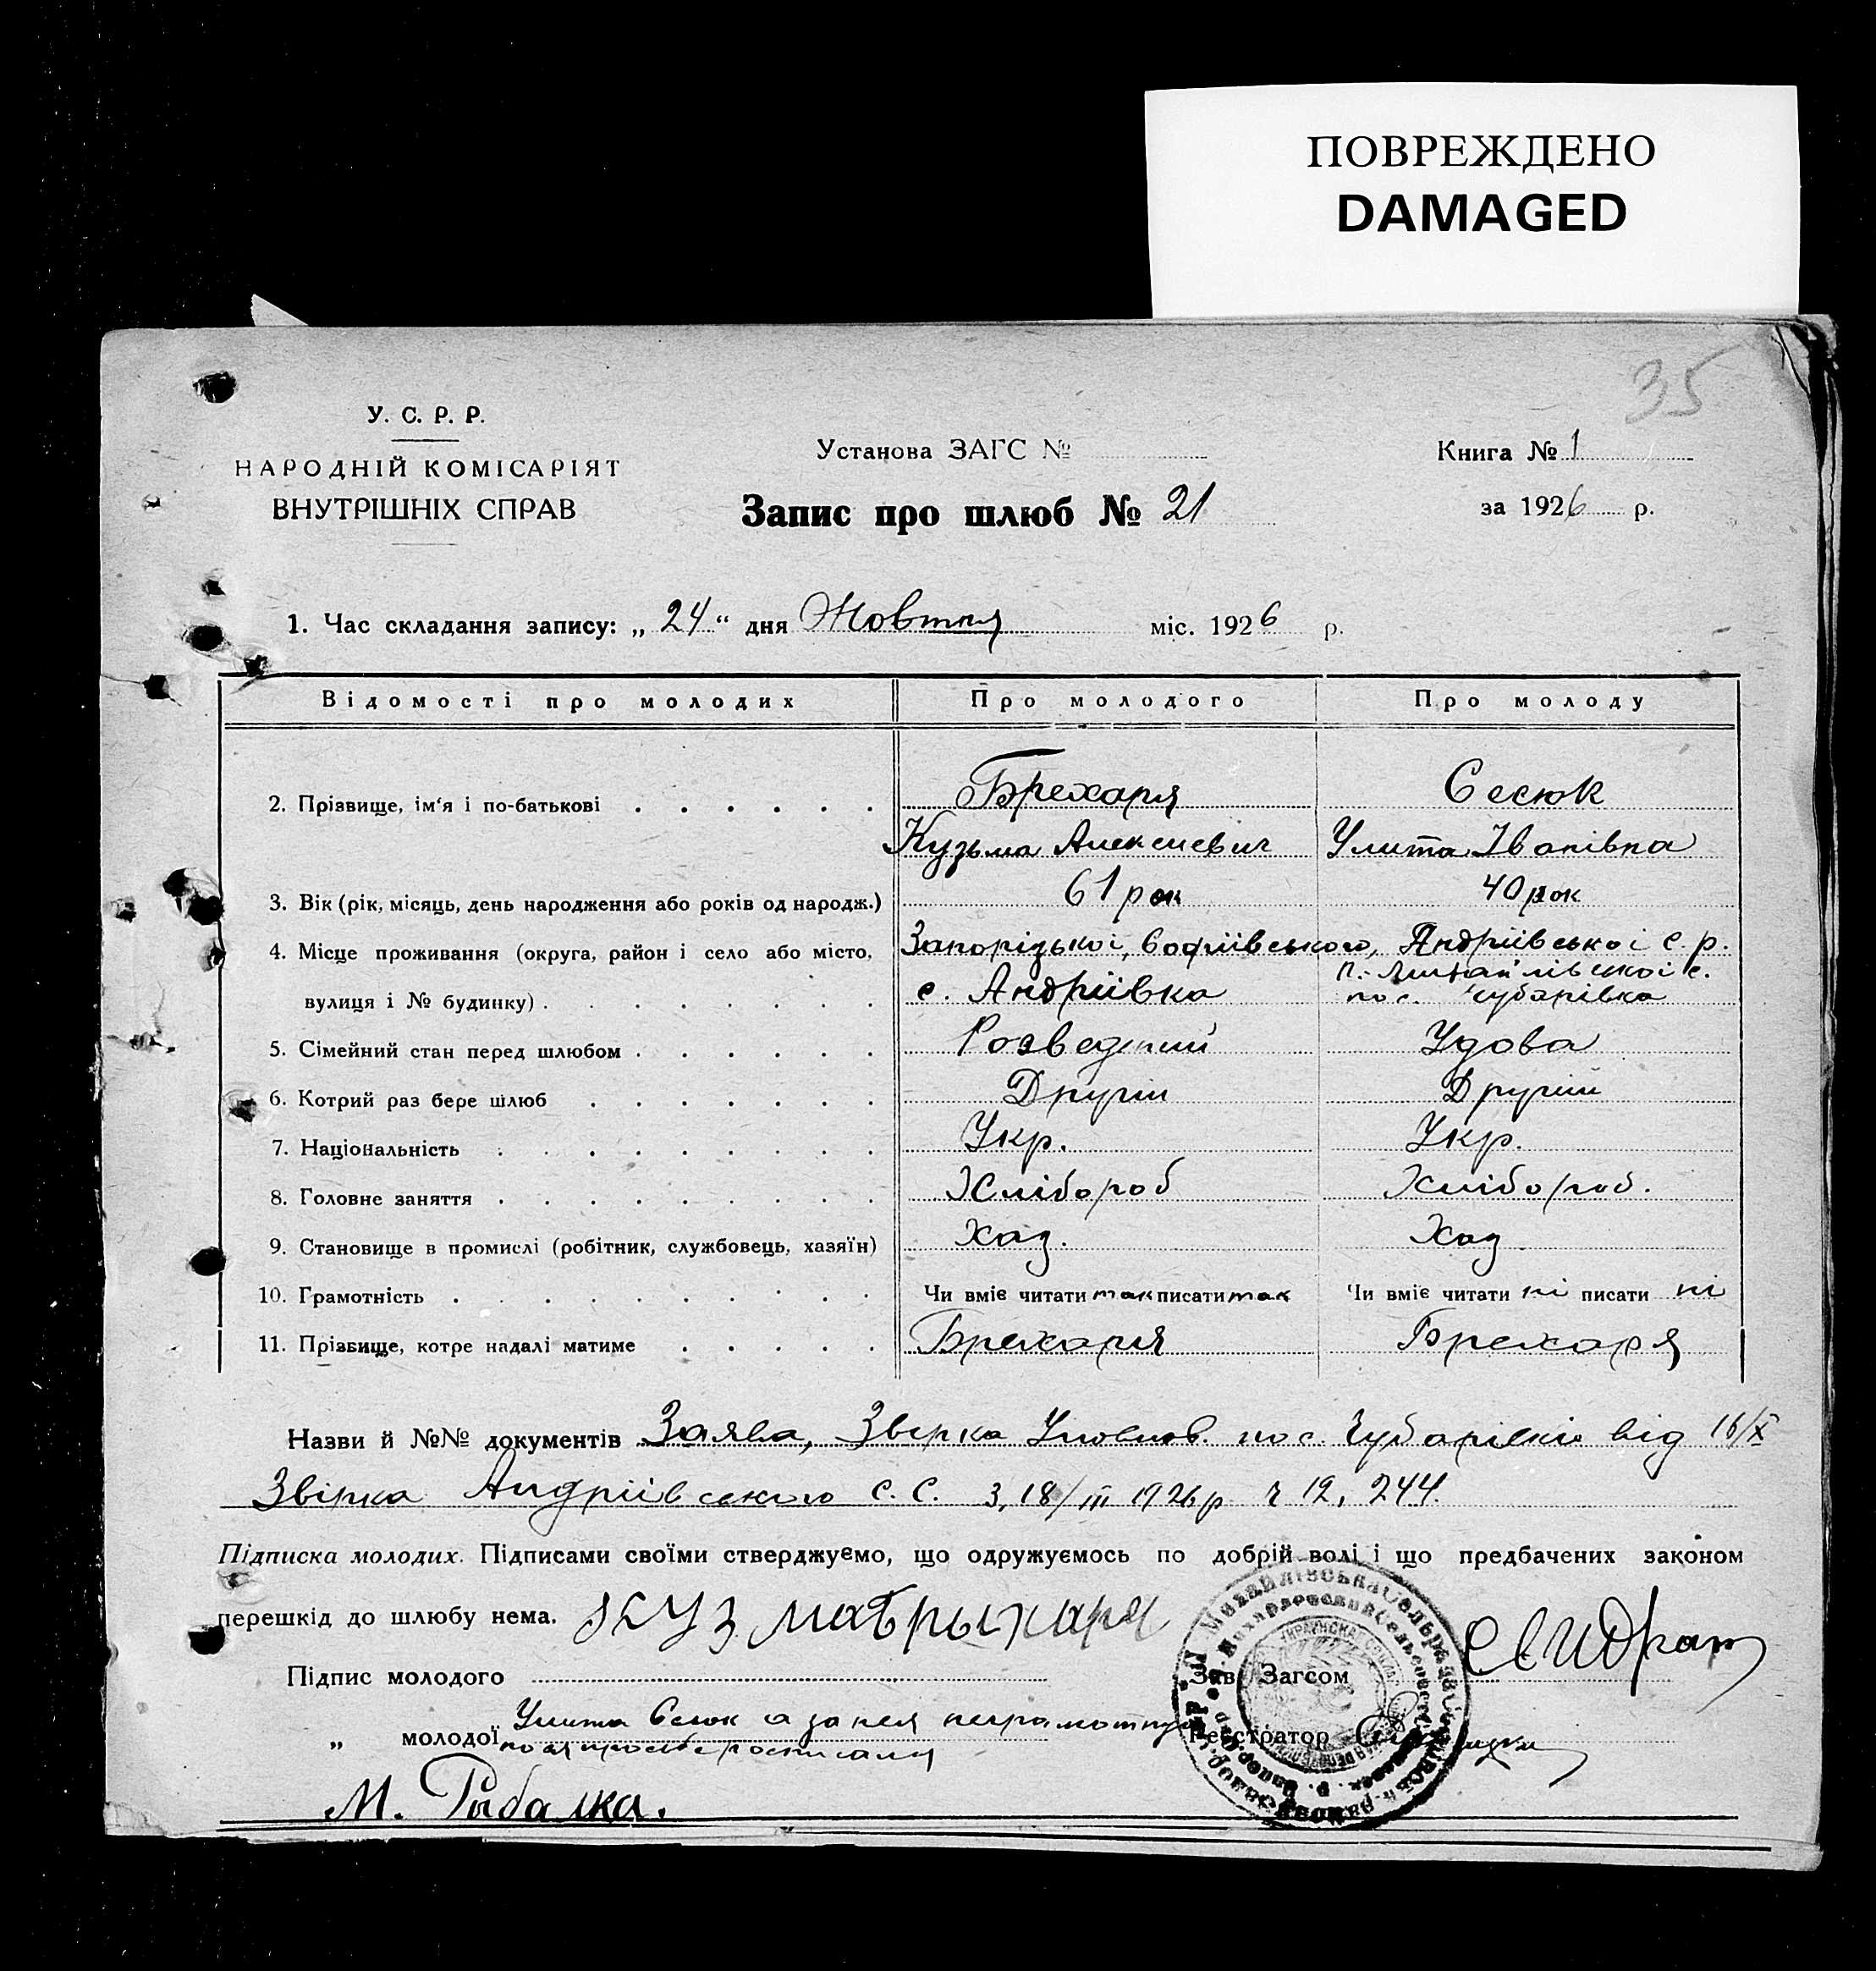 ПОВРЕЖДЕНО
DAMAGED
35
У. С. Р. Р.
НАРОДНІЙ КОМІСАРІЯТ
ВНУТРІШНІХ СПРАВ
Установа ЗАГС №
Запис про шлюб № 21
Книга № 1
за 1926 р.
1. Час складання запису: „ 24 “ дня Жовтня міс. 1926 р.
Відомості про молодих Про молодого Про молоду
2. Прізвище, ім‘я і по-батькові Брехаря Сесюк
Кузьма Алексиевич Улита Іванівна
3. Вік (рік, місяць, день народження або років од народж.) 61 рок 40 рок
4. Місце проживання (округа, район і село або місто, Запорізької, Софіївського, Андріївської с. р.
вулиця і № будинку) с. Андріївка пос. Чубарівка
5. Сімейний стан перед шлюбом Розведений Удова
6. Котрий раз бере шлюб Другий Другий
7. Національність Укр. Укр.
8. Головне заняття Хлібороб Хлібороб.
9. Становище в промислі (робітник, службовець, хазяїн) Хаз. Хаз
10. Грамотність Чи вміє читати так писати так Чи вміє читати ні писати ні
11. Прізвище, котре надалі матиме Брехаря Брехаря
Назви й №№ документів Заява, Звірка пос. Чубарівки від 16/X
Звірка Андріївського С. С. з 18/III 1926 р ч 12, 244.
Підписка молодих. Підписами своїми стверджуємо, що одружуємось по добрій волі і що предбачених законом
перешкід до шлюбу нема. Кузмабрыхаря
Підпис молодого Зав. Загсом
„ молодої Улита Сесюк а за нея неграмотну Реєстратор
по ея просьбе росписался
М. Рибалка.